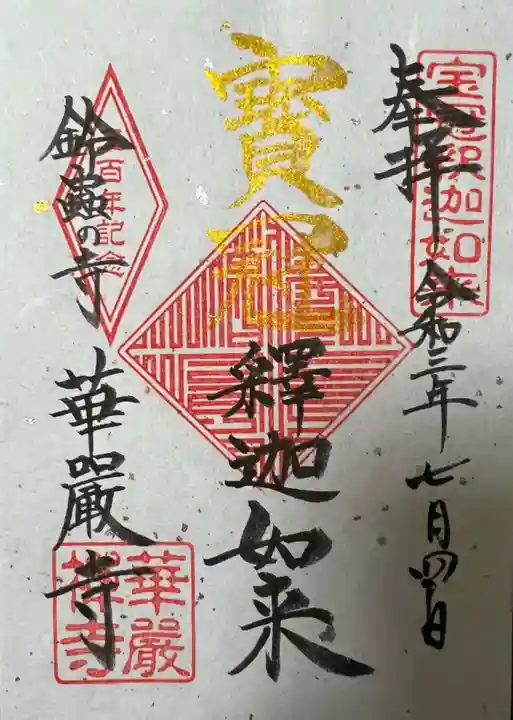 奉拝
令和三年七月四日
宝冠釈迦如来
寳冠
釋迦如来
百年記念
鈴蟲の寺
華嚴寺
華嚴
禅寺